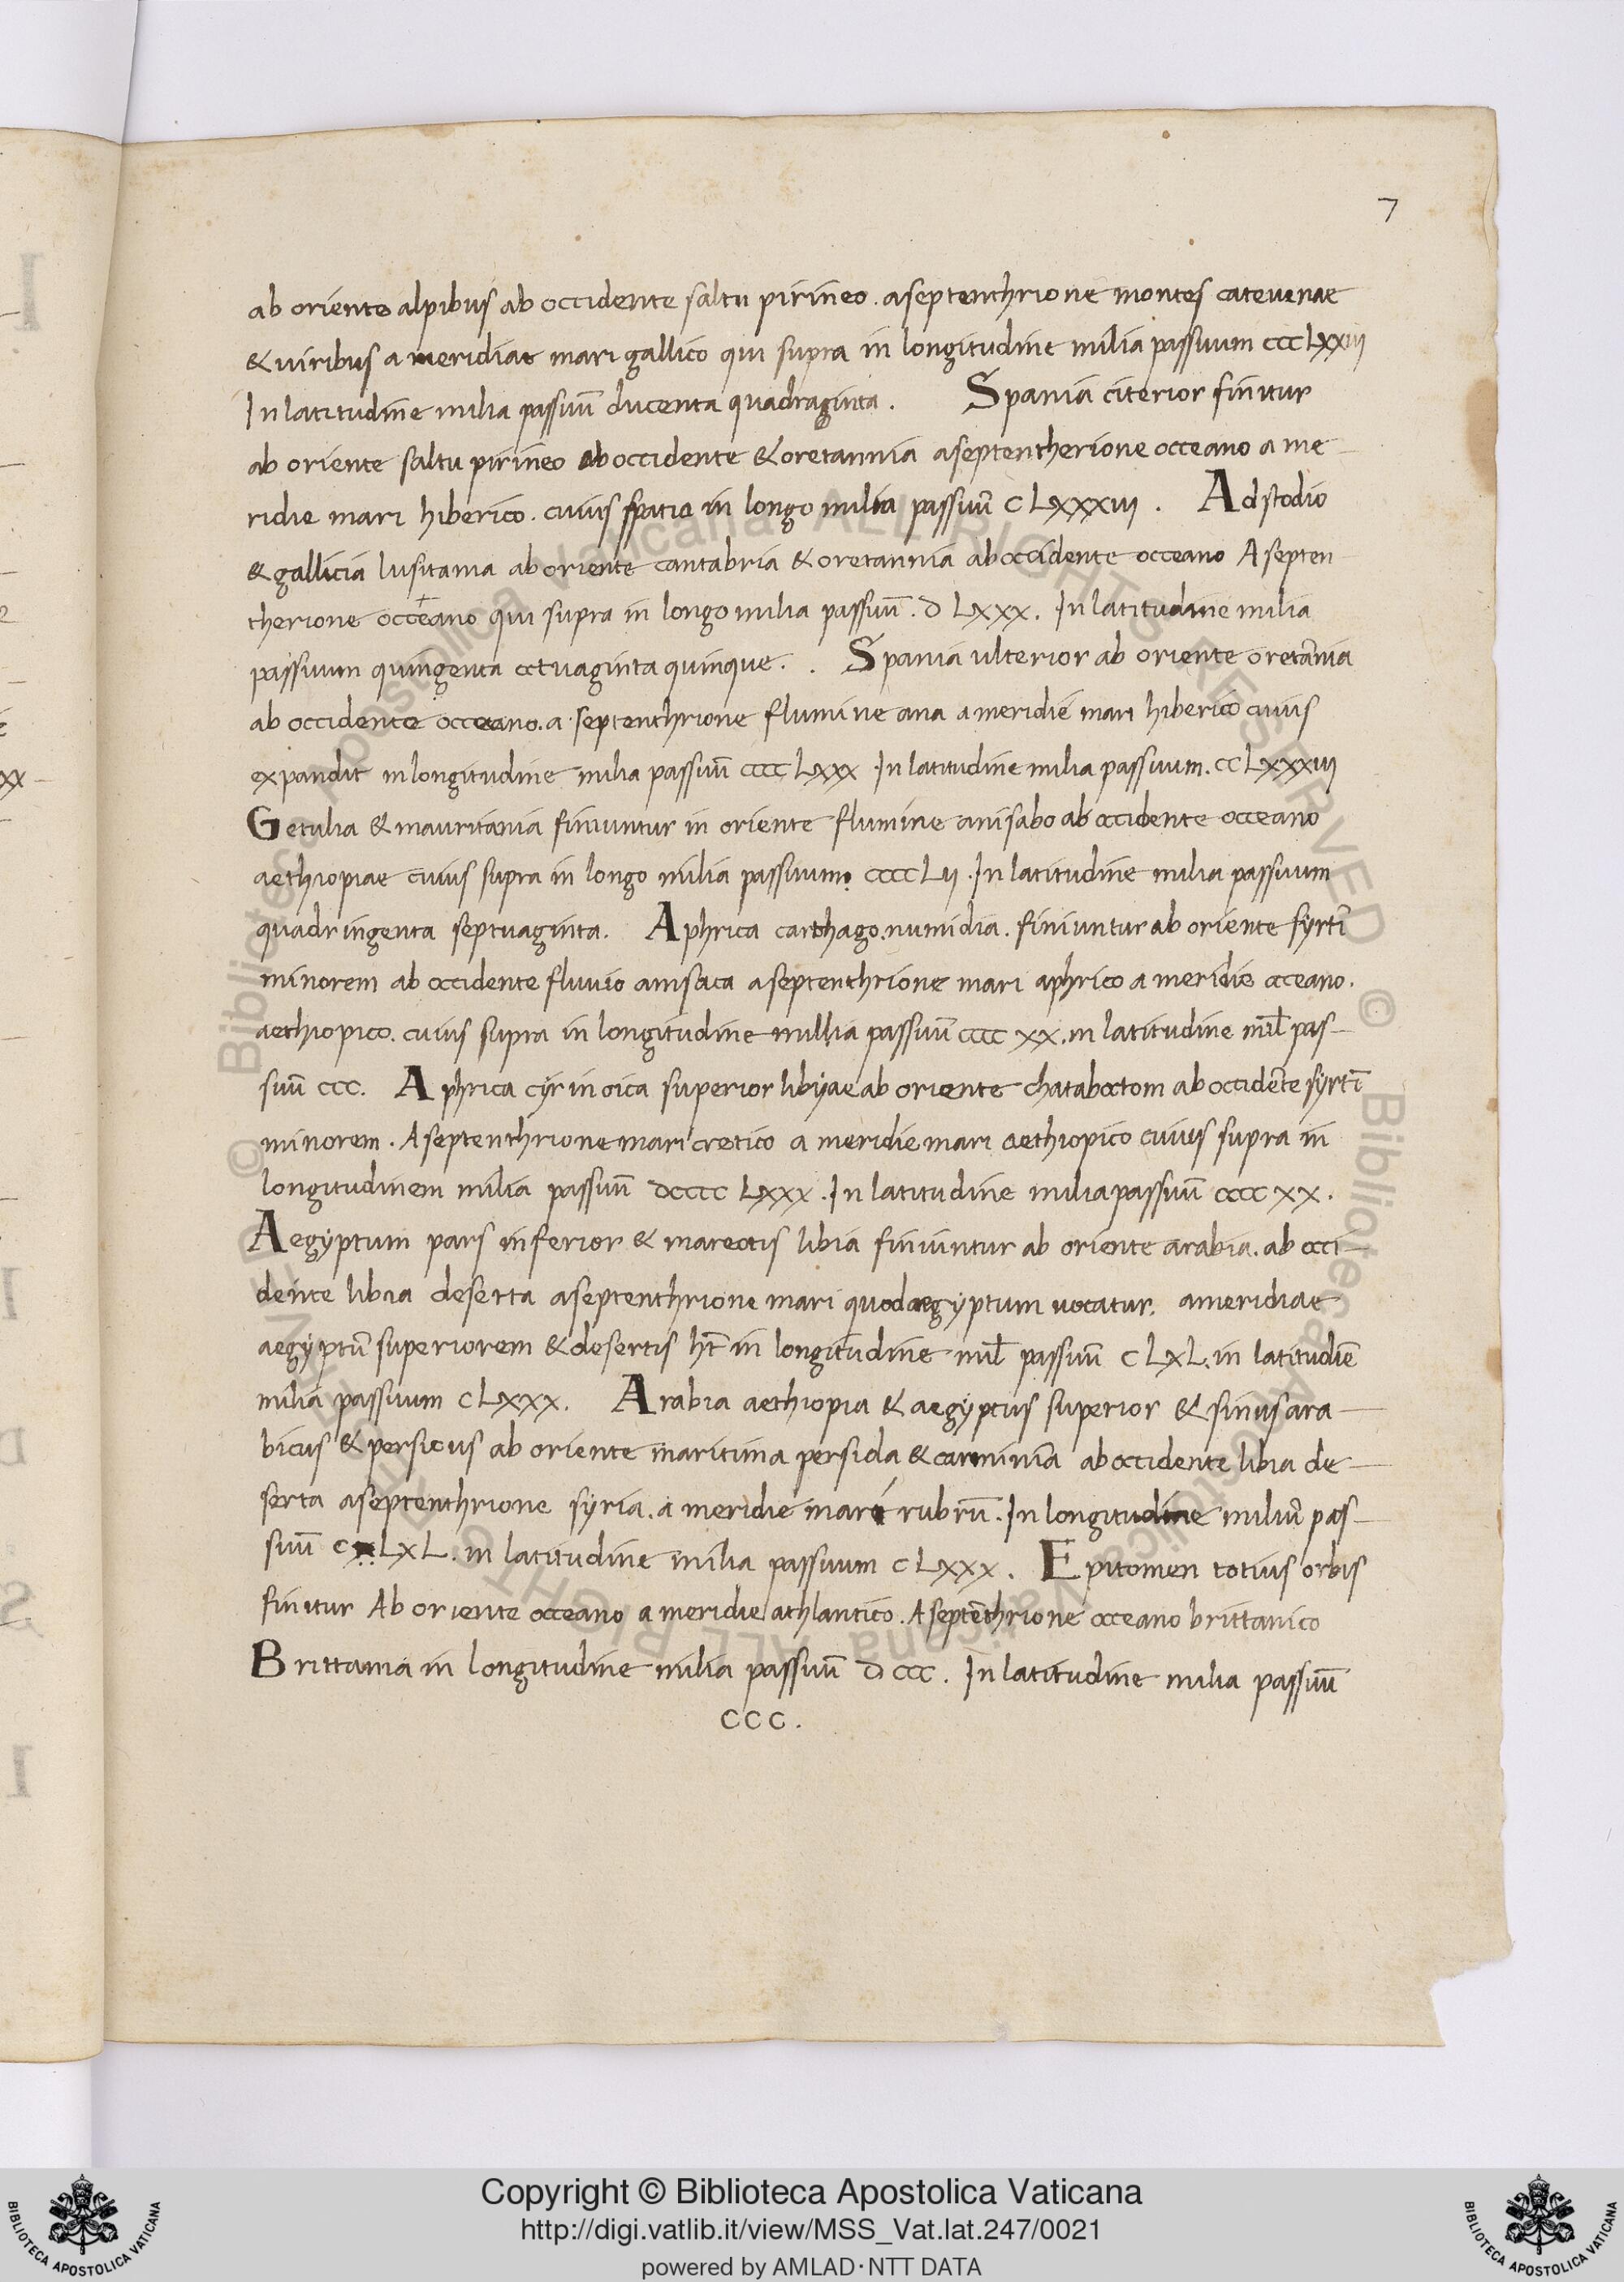 7
ab oriente alpibus ab occidente saltu pirineo. a septenthrione montes catevenae
& viribus a meridiae mari gallico qui supra in longitudine milia passuum CCCLXXIII
In latitudine milia passuū ducenta quadraginta. Spania citerior finitur
ab oriente saltu pirineo ab occidente & oretannia a septentherione occeano a me-
ridie mari hiberico. cuius spatia in longo milia passuū CLXXXIII. Ad stodio
& gallicia lusitania ab oriente cantabria & oretannia ab occidente occeano A septen-
therione occeano qui supra in longo milia passuū. D LXXX. In latitudine milia
passuum quingenta octuaginta quinque. . Spania ulterior ab oriente oretānia
ab occidente occeano. a septenthrione flumine ana a meridie mari hiberico cuius
expandit in longitudine milia passuū CCCC LXXX In latitudine milia passuum. CCLXXXIII
Getulia & mauritania finiuntur in oriente flumine anisabo ab occidente occeano
aethiopiae cuius supra in longo milia passuum. CCCCLII. In latitudine milia passuum
quadringenta septuaginta. Aphrica carthago. numidia. finiuntur ab oriente syrtī
minorem ab occidente fluvio amsaca a septenthrione mari aphrico a meridie oceano.
aethiopico. cuius supra in longitudine millia passuū CCCC XX. in latitudine mil̄ pas-
suū CCC. Aphrica cyrinoica superior libyae ab oriente chatabactom ab occidēte syrtī
minorem. A septenthrione mari cretico a meridie mari aethiopico cuius supra in
longitudinem milia passuū DCCCC LXXX. In latitudine milia passuū CCCC XX.
Aegyptum pars inferior & mareotis libia finiuntur ab oriente arabia. ab occi-
dente libia deserta a septenthrione mari quod aegyptum vocatur. a meridiae
aegyptū superiorem & desertis ht̄ in longitudine mil̄ passuū CLXL. in latitudiē
milia passuum CLXXX. Arabia aethiopia & aegyptus superior & sinus ara-
bicus & persicus ab oriente maritima persida & carminia ab occidente libia de-
serta a septenthrione syria. a meridie mare rubrū. In longitudine miliū pas-
suū CLXL. in latitudine milia passuum CLXXX. Epitomen totius orbis
finitur Ab oriente occeano a meridie athlantico. A septēthrione oceano brittanico
Brittania in longitudine milia passuū DCCC. In latitudine milia passuū
CCC.
© Biblioteca Apostolica Vaticana ALL RIGHTS RESERVED
Copyright © Biblioteca Apostolica Vaticana
http://digi.vatlib.it/view/MSS_Vat.lat.247/0021
powered by AMLAD·NTT DATA
BIBLIOTECA APOSTOLICA VATICANA
BIBLIOTECA APOSTOLICA VATICANA